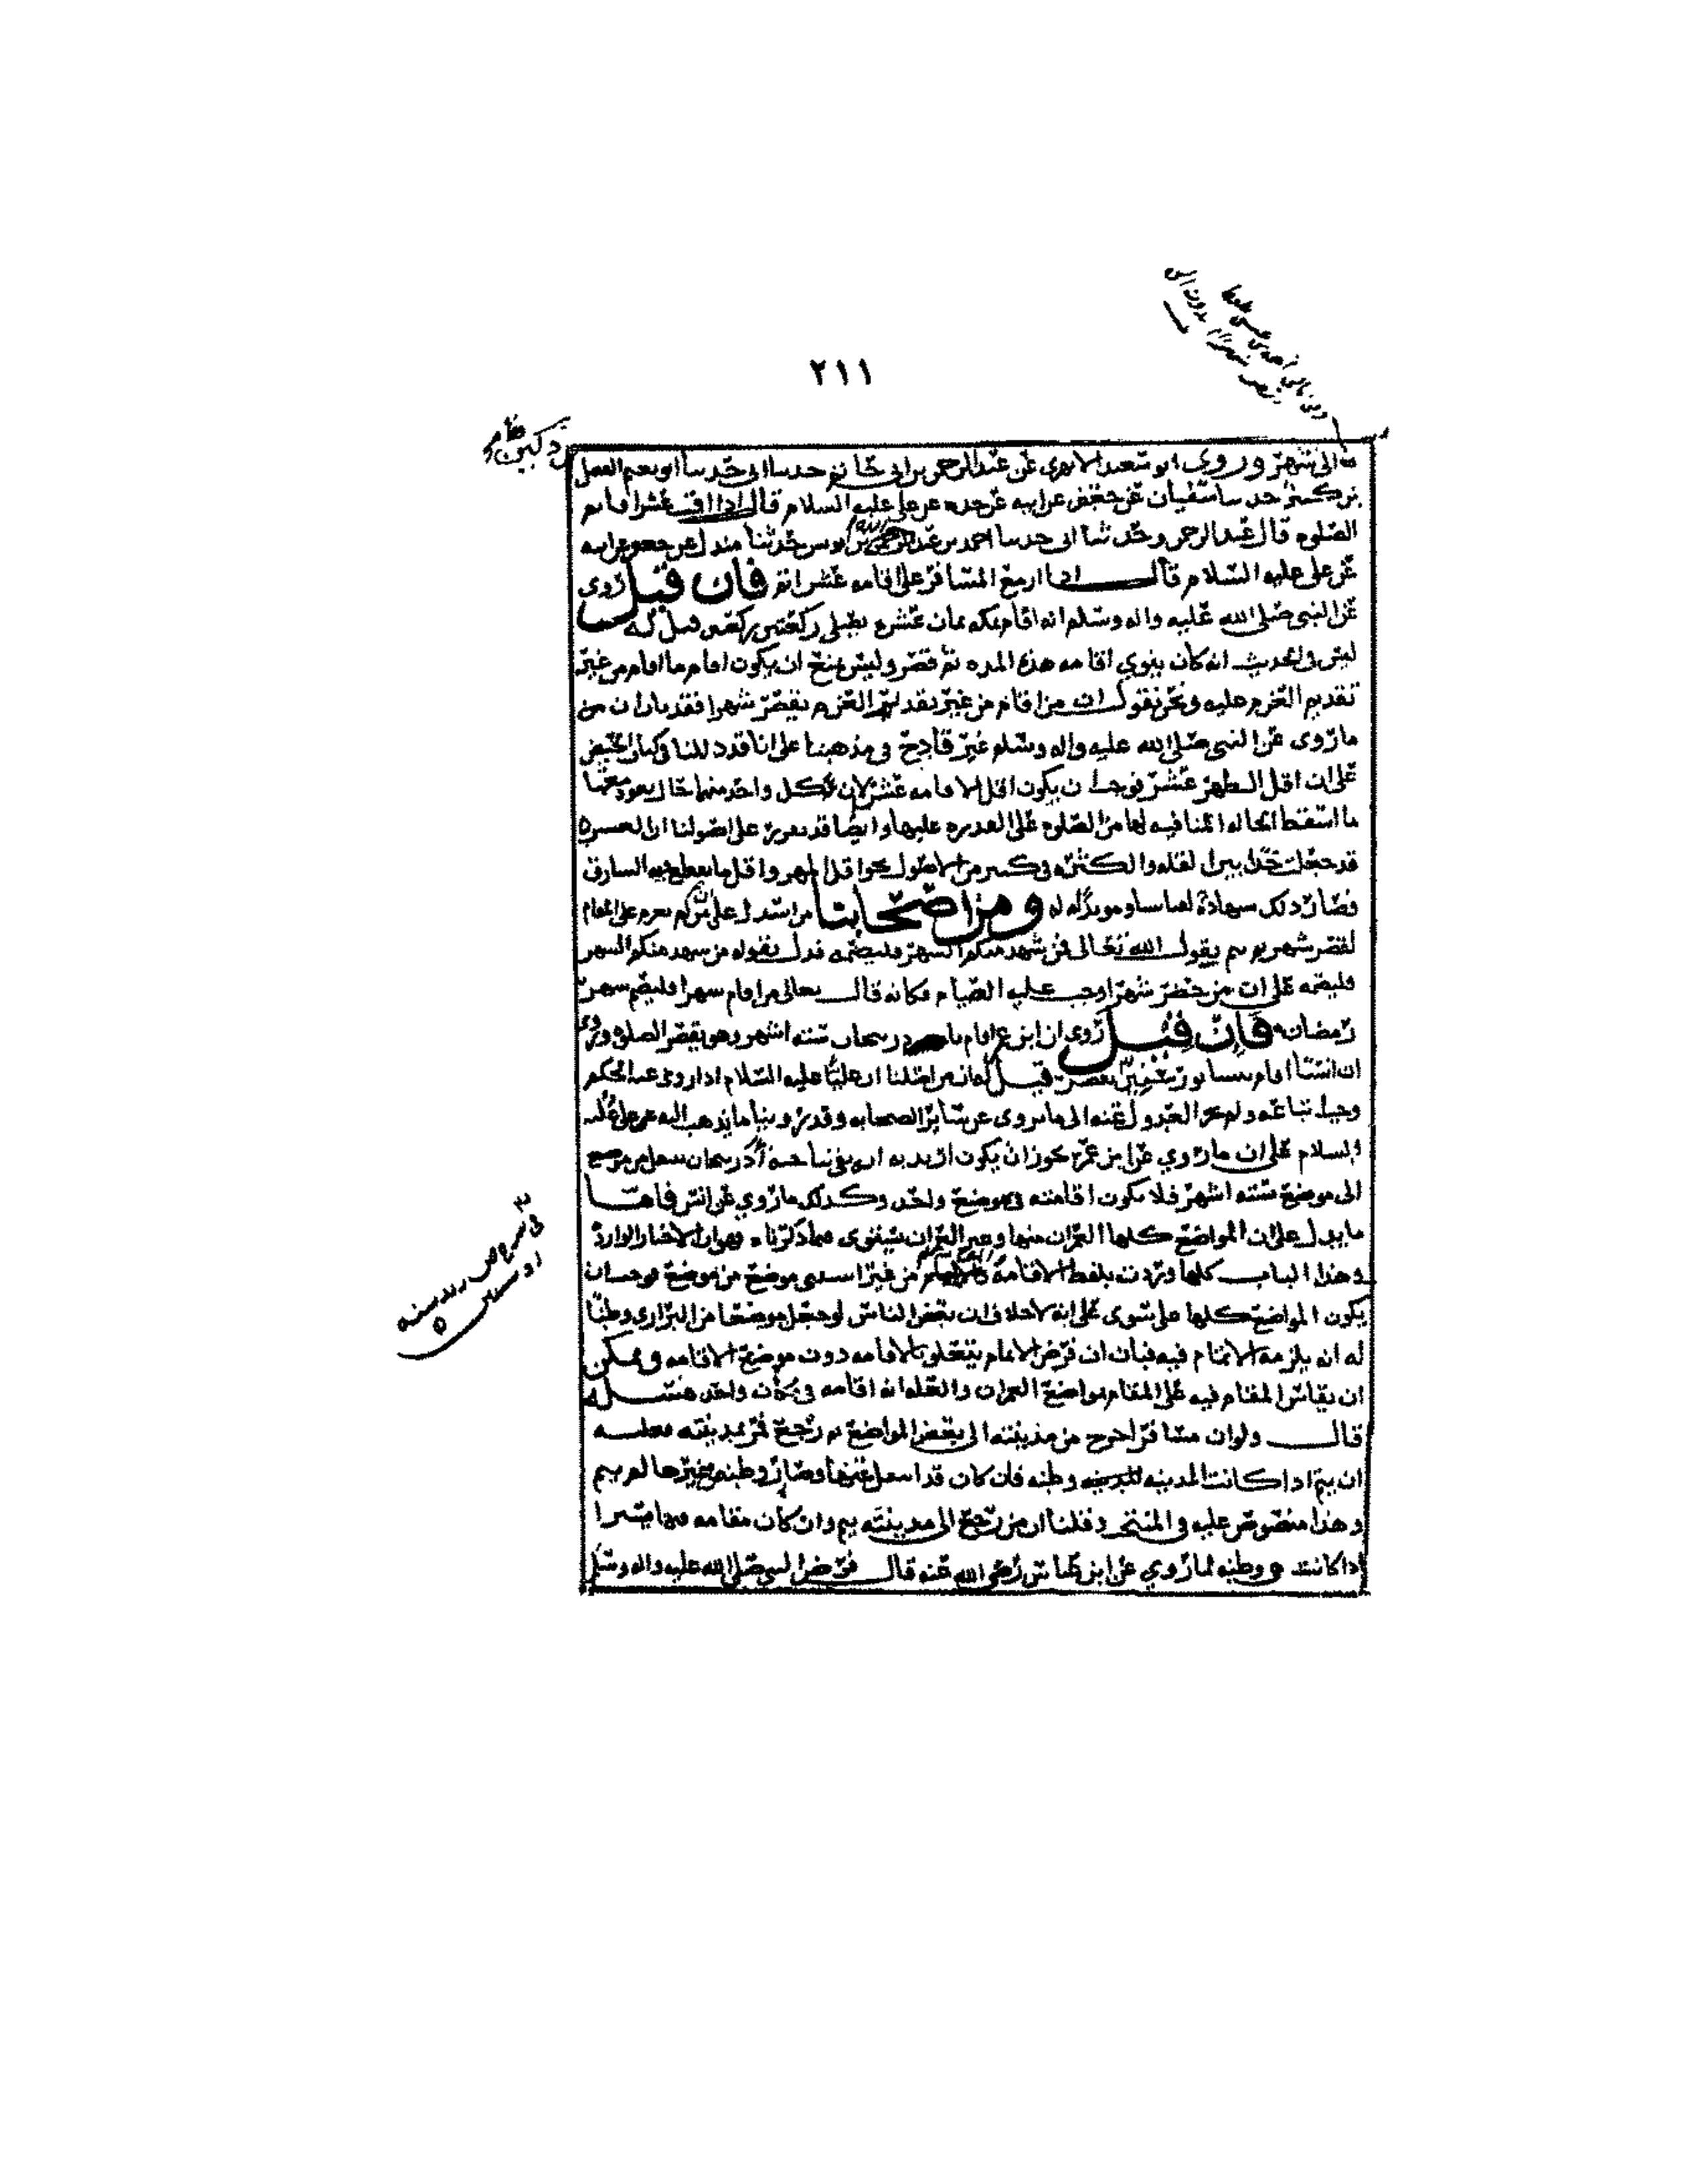 ٢١١
الى شهر وروى ابو سعيد الابهري عن عبد الرحمن بن ابي حاتم حدثنا ابي حدثنا ابو نعيم الفضل
بن حدثنا سفيان عن جعفر عن ابيه عن جده عن علي عليه السلام قال اذا اقمت عشرا فاتم
الصلوه قال عبد الرحمن وحدثنا ابي حدثنا احمد بن عبد الله بن يونس حدثنا مندل عن جعفر عن ابيه
عن علي عليه السلام قال اذا ازمع المسافر على اقامه عشر اتم فان قيل روى
عن النبي صلى الله عليه واله وسلم انه اقام بمكه ثمان عشره يصلي ركعتين ركعتين قيل له
ليس في الحديث انه كان ينوي اقامه هذه المده ثم قصر وليس يمنع ان يكون اقام ما اقام من غير
تقديم العزم عليه ونحن نقول ان من اقام من غير تقديم العزم يقصر شهرا فقد بان ان من
ما روى عن النبي صلى الله عليه واله وسلم غير قادح في مذهبنا على انا قد دللنا في كتاب الحيض
على ان اقل الطهر عشر فوجب ان يكون اقل الاقامه عشر لان لكل واحد منهما حال يعود معها
ما اسقط الحاله المنافيه لها من الصلوه على وايضا قد تقرر على اصولنا ان العشره
قد جعلت حدا بين القله والكثره في كثير من الاصول نحو اقل المهر واقل ما يقطع فيه السارق
فصار ذلك شهادة لقياسنا ومويدا له ومن اصحابنا من استدل على ان من لم يعزم على المقام
لقصر شهر ثم يتم بقول الله تعالى فمن شهد منكم الشهر فليصمه فدل بقوله من شهد منكم الشهر
فليصمه على ان من حضر شهرا وجب عليه الصيام فكانه قال تعالى من اقام شهرا فليصم شهر
رمضان فان قيل روى ان ابن عمر اقام باذربيجان سته اشهر وهو يقصر الصلوه وروى
ان انسا اقام بنيسابور سنتين يقصر قيل له ان من اصلنا ان عليا عليه السلام اذا روى عنه الحكم
وجب اتباعه ولم يجز العدول عنه الى ما يروى عن سائر الصحابه وقد روينا ما نذهب اليه عن علي عليه
السلام على ان ما روي عن ابن عمر يجوز ان يكون اريد به انه بقي بناحية اذربيجان ينتقل من موضع
الى موضع سته اشهر فلا يكون اقامته في موضع واحد وكذلك ما روي عن انس فاما
ما يدل على ان المواضع كلها العمران منها وغير العمران سوى فيما ذكرناه فهو ان الاخبار الوارد
في هذا الباب كلها وردت بلفظ الاقامة من غير استثنى موضع من موضع فوجب ان
يكون المواضع كلها على سوى على انه لا خلاف ان بعض الناس لو جعل موضعا من البراري وطنا
له انه يلزمه الاتمام فيه فبان ان فرض الاتمام يتعلق بالاقامه دون موضع الاقامه ويمكن
ان يقاس المقام فيه على المقام بمواضع العمران والعله انه اقامه في مكان واحد مسئله
قال ولو ان مسافرا خرج من مدينته الى بعض المواضع ثم رجع فمر بمدينته فعليه
ان يتم اذا كانت المدينه وطنه فان كان قد انتقل عنها وصار وطنه غيرها لم يتم
وهذا منصوص عليه في المنتخب وقلنا ان من رجع الى مدينته يتم وان كان مقامه فيها يسيرا
اذا كانت وطنه لما روي عن ابن عباس رضي الله عنه قال فرض النبي صلى الله عليه واله وسلم